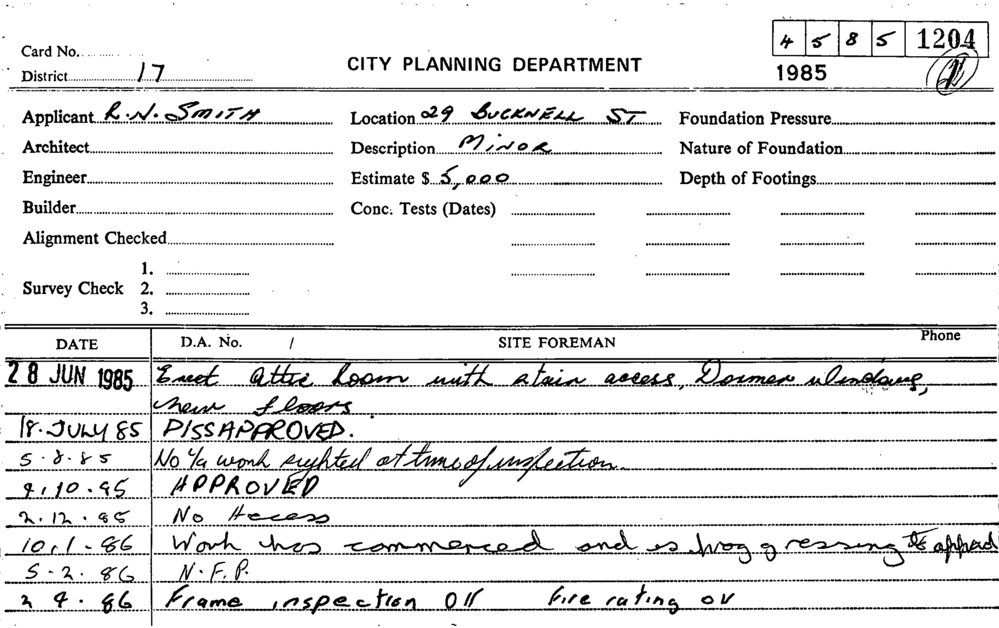 4 5 8 5 1204
Card No.
District 17
CITY PLANNING DEPARTMENT
1985
Applicant R.N. SMITH
Location 29 BUCKNELL ST
Foundation Pressure
Architect
Description MINOR
Nature of Foundation
Engineer
Estimate $ 5,000
Depth of Footings
Builder
Conc. Tests (Dates)
Alignment Checked
1.
Survey Check 2.
3.
DATE D.A. No. / SITE FOREMAN Phone
28 JUN 1985 Erect attic room with stair access, Dormer windows,
new floors.
18. JULY 85 DISSAPPROVED.
5.8.85 No u/a work sighted at time of inspection.
.10.85 APPROVED
2.12.85 No Access
10.1.86 Work has commenced and is proggressing to
5.2.86 N.F.P.
2 4.86 Frame inspection OK Fire rating OK